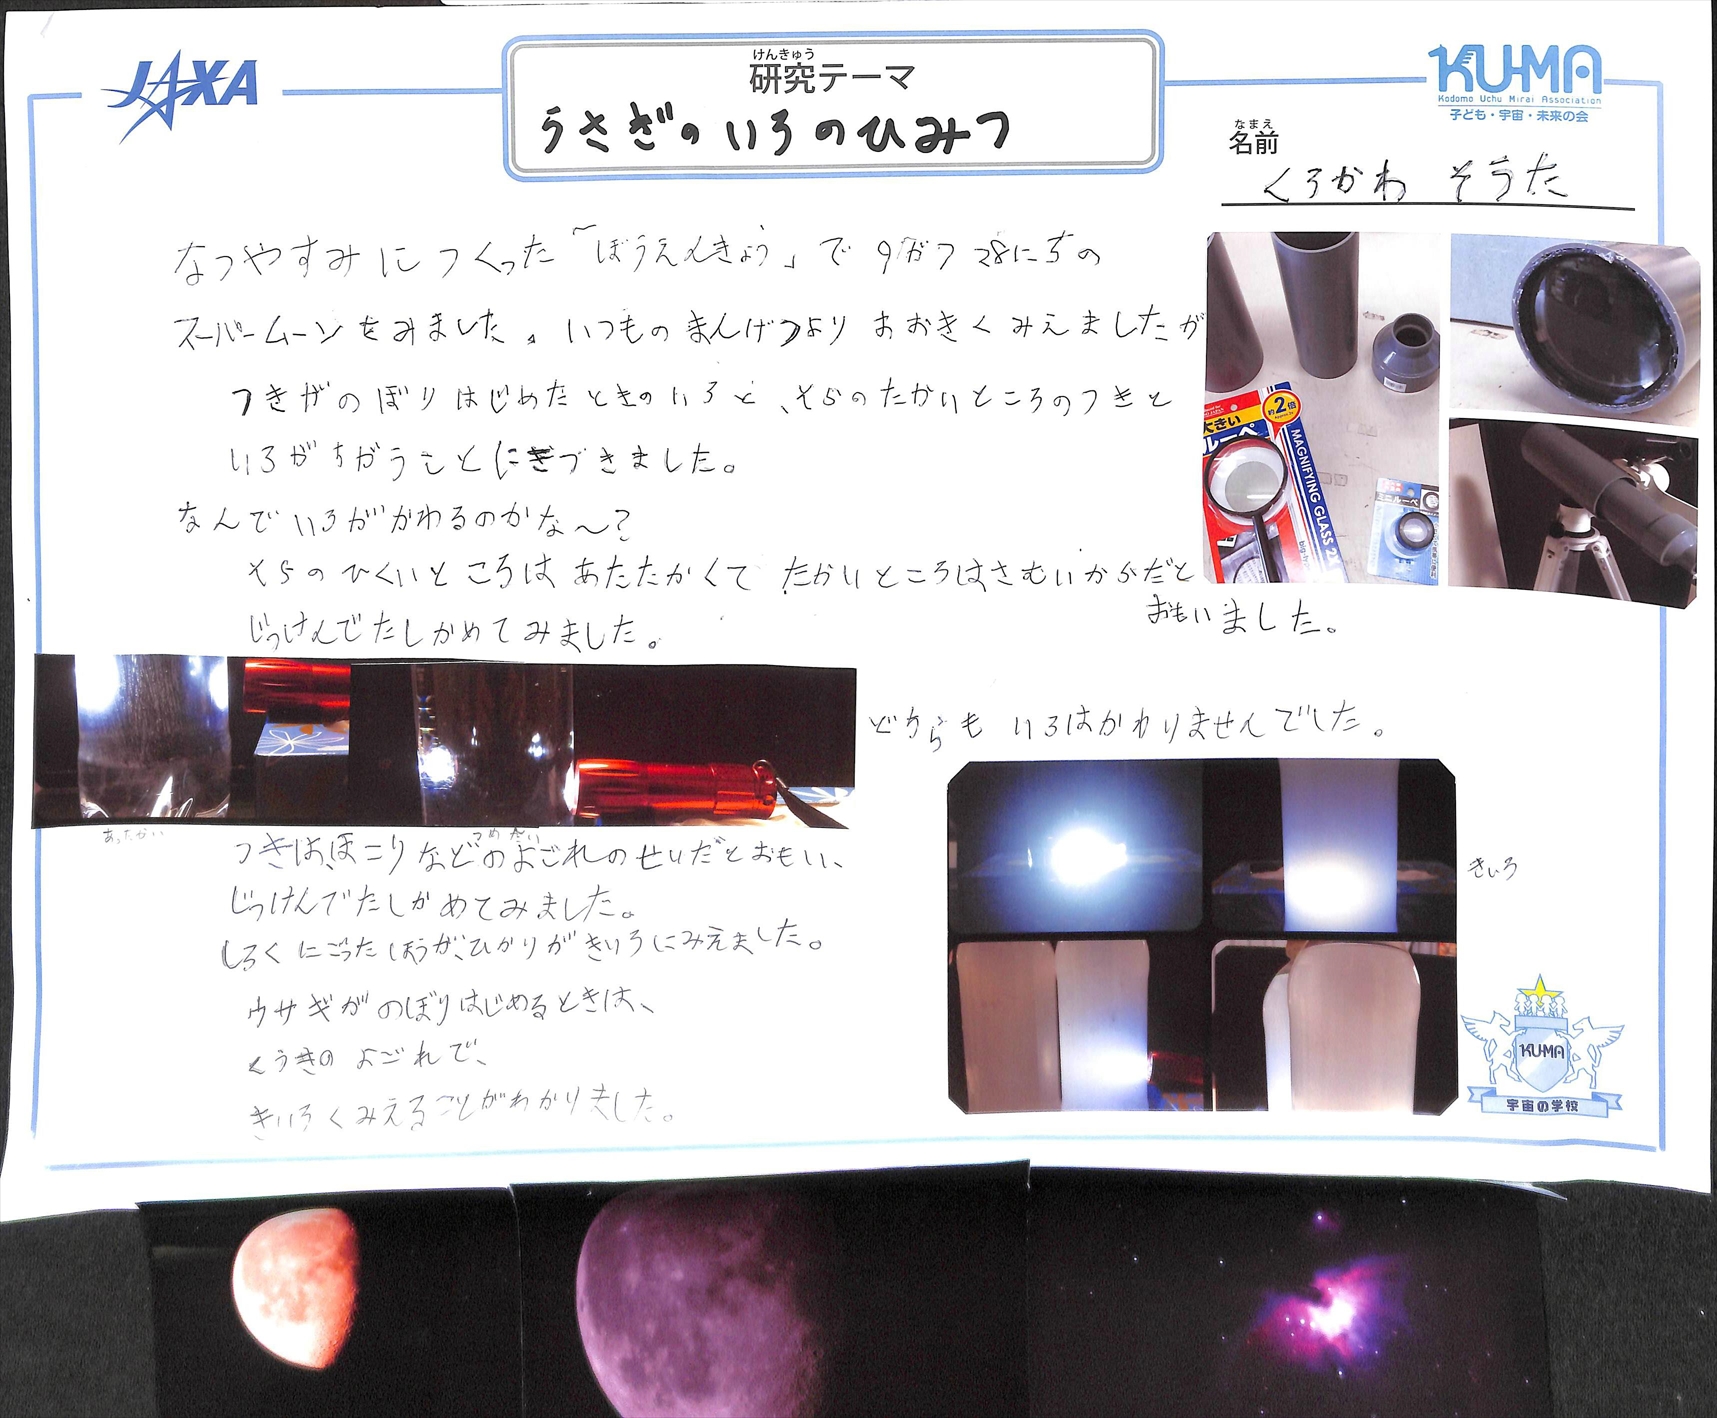 JAXA
けんきゅう
研究テーマ
うさぎのいろのひみつ
KU-MA
Kodomo Uchu Mirai Association
子ども・宇宙・未来の会
なまえ
名前
くろかわ そうた
なつやすみにつくった「ぼうえんきょう」で9がつ28にちの
スーパームーンをみました。いつものまんげつよりおおきくみえましたが
つきがのぼりはじめたときのいろと、そらのたかいところのつきと
いろがちがうことにきづきました。
なんでいろがかわるのかな〜?
そらのひくいところはあたたかくてたかいところはさむいからだと
おもいました。
じっけんでたしかめてみました。
大きい
ルーペ
約2倍
MAGNIFYING GLASS 2X
ミニルーペ
どちらもいろはかわりませんでした。
あったかい
つめたい
つきは、ほこりなどのよごれのせいだとおもい、
じっけんでたしかめてみました。
しろくにごったほうが、ひかりがきいろにみえました。
きいろ
ウサギがのぼりはじめるときは、
くうきのよごれで、
きいろくみえることがわかりました。
KU-MA
宇宙の学校